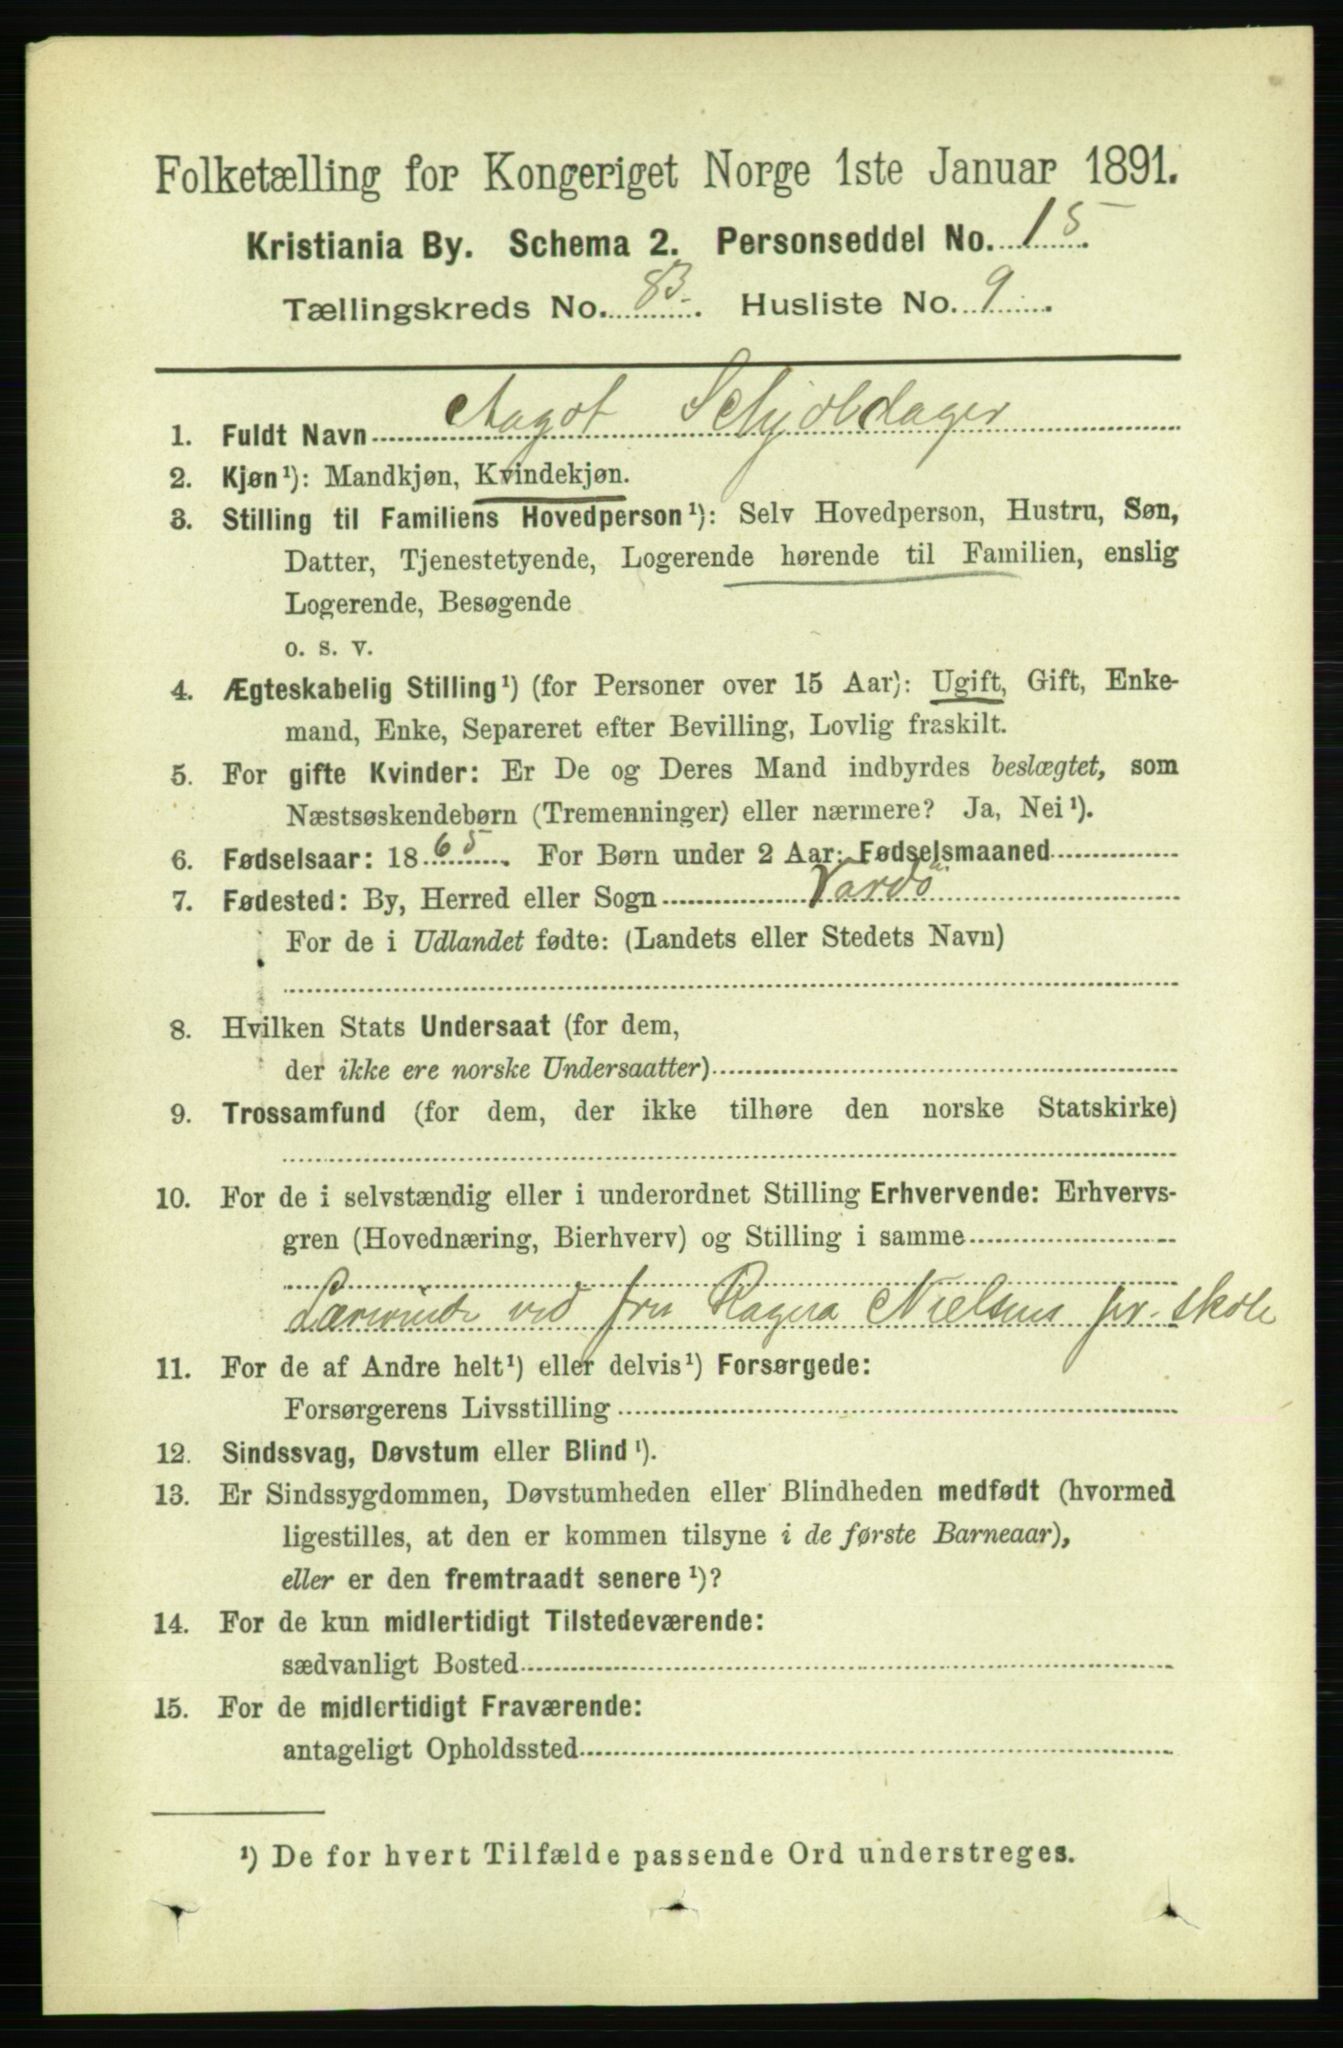 Folketælling for Kongeriget Norge 1ste Januar 1891.
Kristiania By. Schema 2. Personseddel No. 15.
Tællingskreds No. 83. Husliste No. 9.
1. Fuldt Navn Aagot Schjoldager
2. Kjøn¹): Mandkjøn, Kvindekjøn.
3. Stilling til Familiens Hovedperson¹): Selv Hovedperson, Hustru, Søn,
Datter, Tjenestetyende, Logerende hørende til Familien, enslig
Logerende, Besøgende
o. s. v.
4. Ægteskabelig Stilling¹) (for Personer over 15 Aar): Ugift, Gift, Enke-
mand, Enke, Separeret efter Bevilling, Lovlig fraskilt.
5. For gifte Kvinder: Er De og Deres Mand indbyrdes beslægtet, som
Næstsøskendebørn (Tremenninger) eller nærmere? Ja, Nei¹).
6. Fødselsaar: 1865. For Børn under 2 Aar: Fødselsmaaned
7. Fødested: By, Herred eller Sogn Vardö
For de i Udlandet fødte: (Landets eller Stedets Navn)
8. Hvilken Stats Undersaat (for dem,
der ikke ere norske Undersaatter)
9. Trossamfund (for dem, der ikke tilhøre den norske Statskirke)
10. For de i selvstændig eller i underordnet Stilling Erhvervende: Erhvervs-
gren (Hovednæring, Bierhverv) og Stilling i samme
Lærerinde ved frk Ragna Nielsens pr. skole
11. For de af Andre helt¹) eller delvis¹) Forsørgede:
Forsørgerens Livsstilling
12. Sindssvag, Døvstum eller Blind¹).
13. Er Sindssygdommen, Døvstumheden eller Blindheden medfødt (hvormed
ligestilles, at den er kommen tilsyne i de første Barneaar),
eller er den fremtraadt senere¹)?
14. For de kun midlertidigt Tilstedeværende:
sædvanligt Bosted
15. For de midlertidigt Fraværende:
antageligt Opholdssted
¹) De for hvert Tilfælde passende Ord understreges.